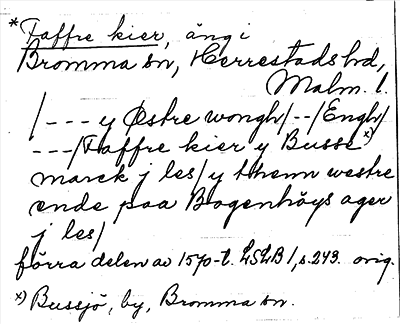 * Taffre kier, äng i
Bromma sn, Herrestads hd,
Malm. l.
/--- y Østre wongh/--/Engh/
---/Taffre kier y Busse x)
marck j les/y thenn westre
ende paa Bogenhöys ager
j les/
förra delen av 1570-t. LSLB 1, s. 243. orig.
x) Bussjö, by, Bromma sn.